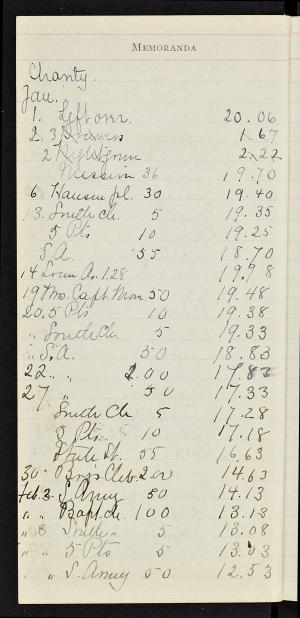 MEMORANDA
Charity.
Jan.
1. Left over. 20.06
2. 3 1.67
2 2.22
Mission 36 19.70
6. Hansen pl. 30 19.40
13. South Ch. 5 19.35
5 Pts 10 19.25
S.A. 55 18.70
14 1.28 19.98
19 Mrs. Capt. 50 19.48
20. 5 Pts 10 19.38
" South Ch. 5 19.33
" S.A. 50 18.83
22 " 2.00 17.83
27 " 50 17.33
South Ch 5 17.28
5 Pts. 10 17.18
State St. 55 16.63
30. Boys Club. 2.00 14.63
Feb. 3. S. Army 50 14.13
" " Bapt. ch. 100 13.13
" 8 South " 5 13.08
" " 5 Pts 5 13.03
" " S. Army 50 12.53